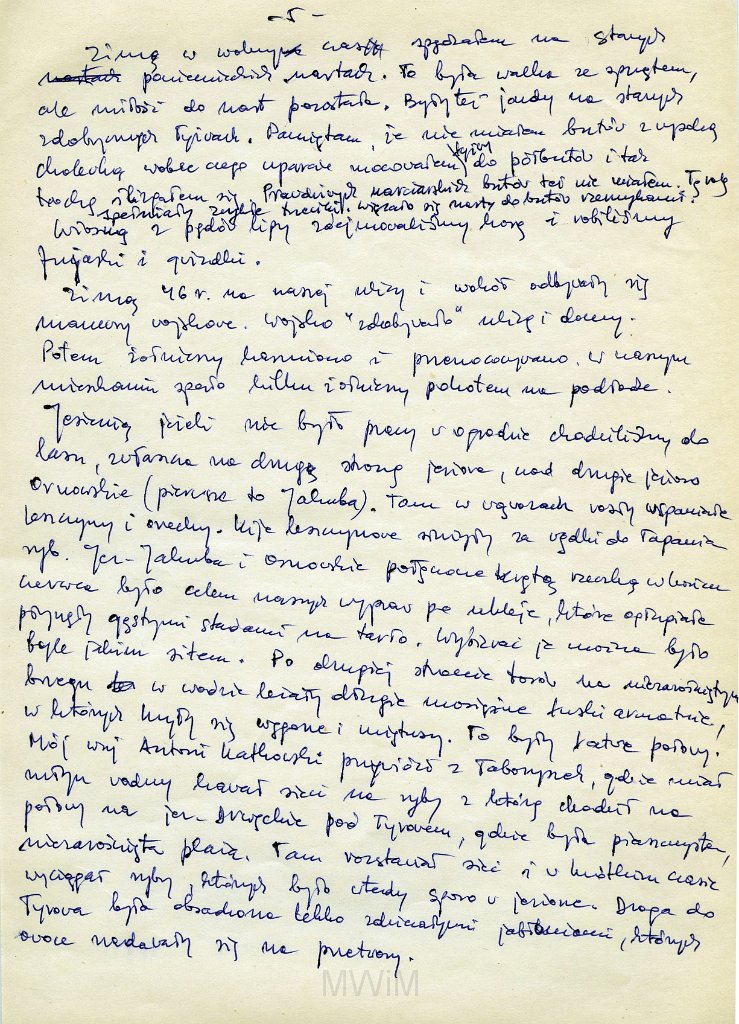 - 5 -
Zimą w wolnym czasie spędzałem na starych
nartach poniemieckich nartach. To była walka ze sprzętem,
ale miłość do nart pozostała. Były tej jazdy na starych
zdobycznych łyżwach. Pamiętam, że nie miałem butów z wysoką
cholewką wobec czego uparcie mocowałem łyżwy do półbutów i tak
trochę ślizgałem się. Prawdziwych narciarskich butów też nie miałem. Tę rolę
spełniały zwykłe trzewiki. Wiązało się narty do butów rzemykami.
Wiosną z pędów lipy zdejmowaliśmy korę i robiliśmy
fujarki i gwizdki.
Zimą 46 r. na naszej ulicy i wokół odbywały się
manewry wojskowe. Wojsko "zdobywało" ulicę i domy.
Potem żołnierzy karmiono i przenocowywano. W naszym
mieszkaniu spało kilku żołnierzy pokotem na podłodze.
Jesienią jeżeli nie było pracy w ogrodzie chodziliśmy do
lasu, zwłaszcza na drugą stronę jeziora, nad drugie jezioro
Ornowskie (pierwsze to Jakuba). Tam w wąwozach rosły wspaniałe
leszczyny i orzechy. Kije leszczynowe służyły za wędki do łapania
ryb. Jez. Jakuba i Ornowskie połączone krętą rzeczką w końcu
czerwca było celem naszych wypraw po ukleje, które
płynęły gęstymi stadami na tarło. Wybierać je można było
byle jakim sitem. Po drugiej stronie torów na niezarośniętym
brzegu w wodzie leżały długie mosiężne łuski armatnie,
w których kryły się węgorze i miętusy. To były łatwe połowy.
Mój wuj Antoni Katkowski przywiózł z Taboryszek, gdzie miał
młyn wodny kawał sieci na ryby z którą chodził na
połowy na jez. Drwęckie pod Tyrowem, gdzie była piaszczysta,
niezarośnięta plaża. Tam rozstawiał sieć i w krótkim czasie
wyciągał ryby, których było wtedy sporo w jeziorze. Droga do
Tyrowa była obsadzona lekko zdziczałymi jabłoniami, których
owoce nadawały się na przetwory.
MWiM